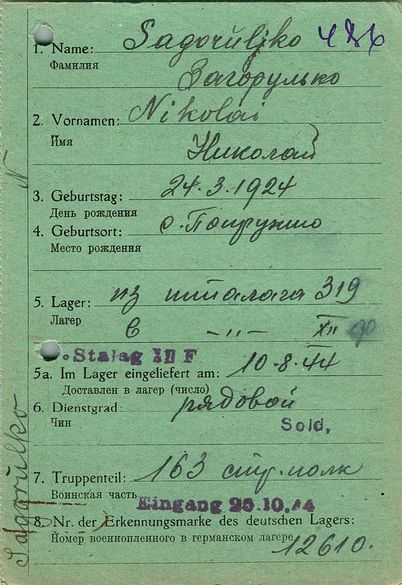 1. Name: Sagorŭljko 486
Фамилия Загорулько
2. Vornamen: Nikolai
Имя Николай
3. Geburtstag: 24.3.1924
День рождения
4. Geburtsort: с.
Место рождения
5. Lager: из шталага 319
Лагер в -"- XII
Stalag III F
5a. Im Lager eingeliefert am: 10-8-44
Доставлен в лагер (число)
6. Dienstgrad: рядовой
Чин Sold,
7. Truppenteil: 163 стр. полк
Воинская часть Eingang 25.10.44
8. Nr. der Erkennungsmarke des deutschen Lagers:
Номер военнопленного в германском лагере 12610.
Sagorŭlko
N